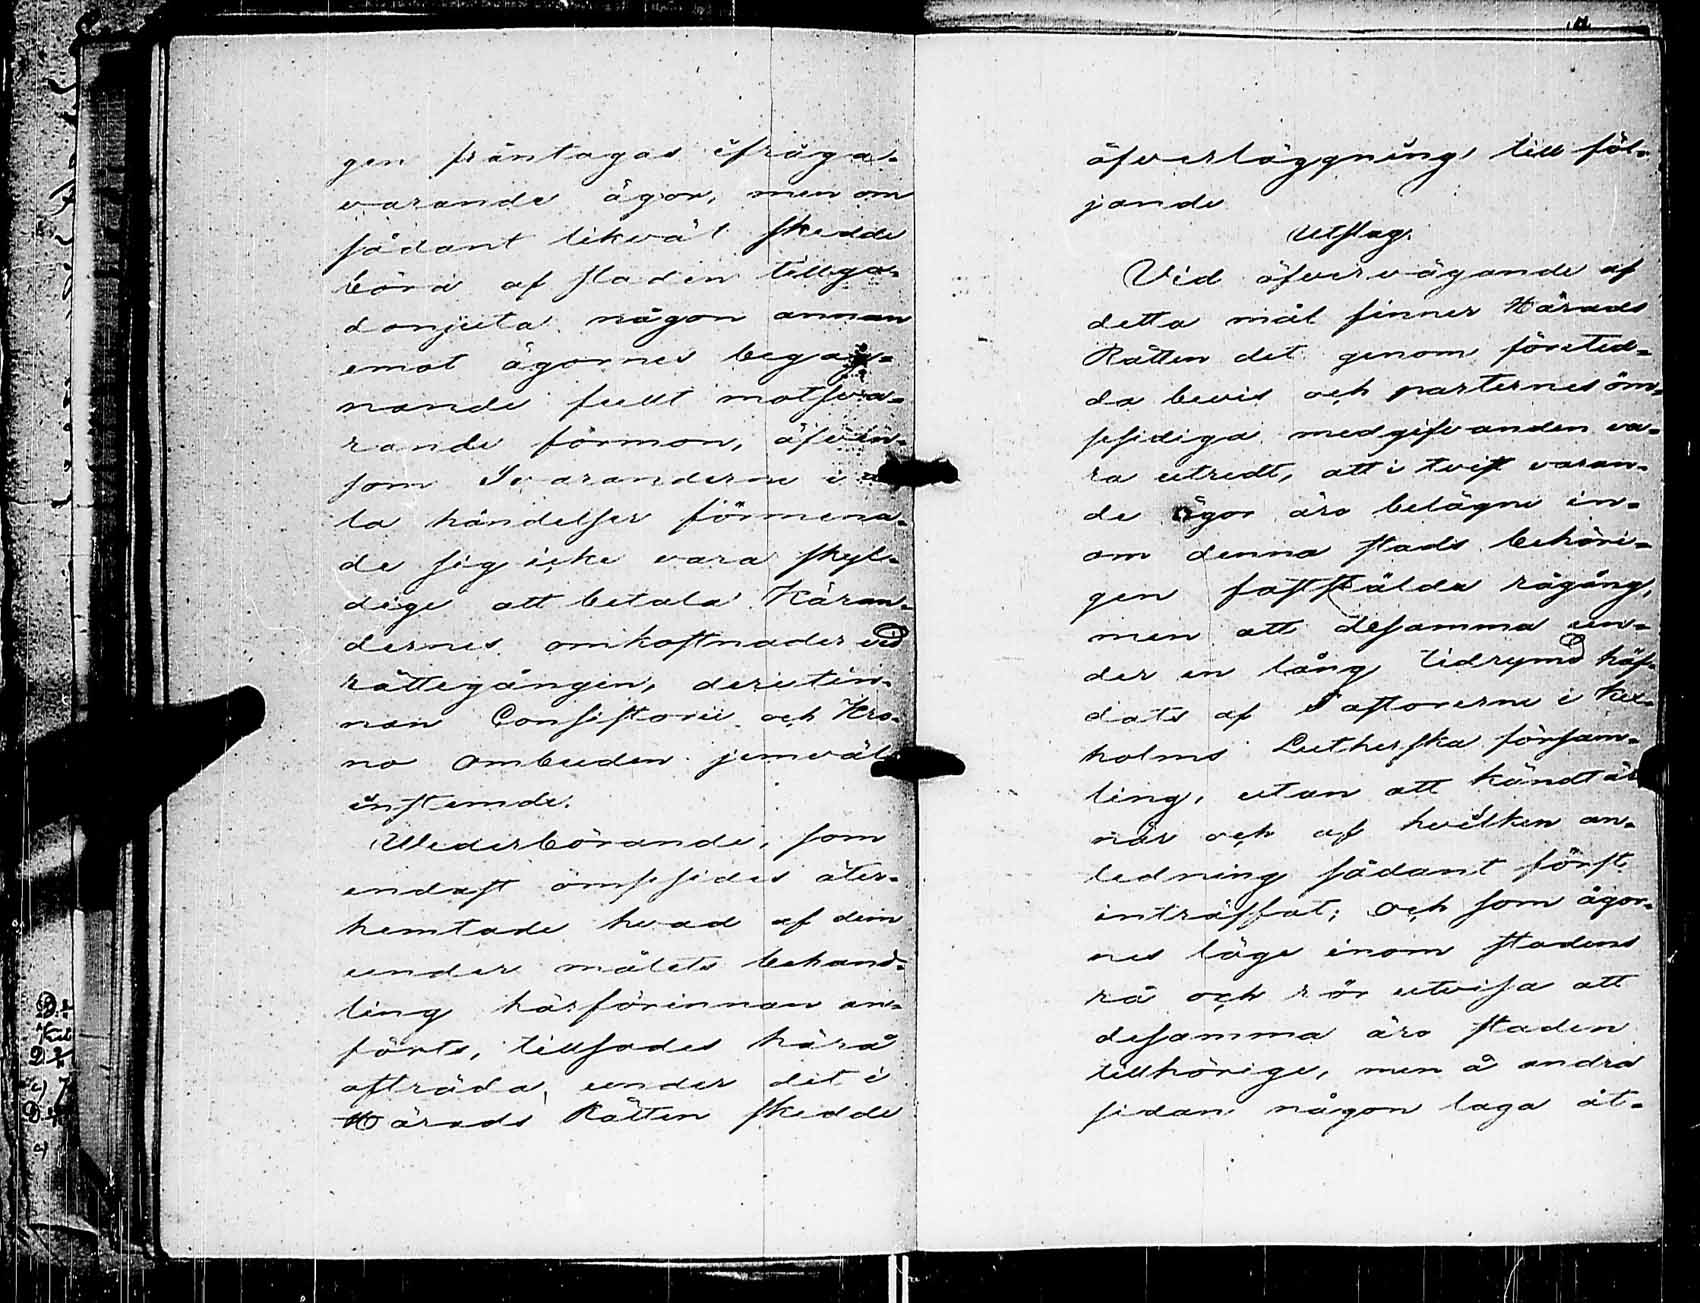 gen fråntagas ifråga-
varande ägor, men om
sådant likväl skedde
böra af staden tillgo-
donjuta någon annan
emot ägornes begag-
nande fullt motsva-
rande förmon, äfven-
som Svaranderne i
la händelser förmena-
de sig icke vara skyl-
dige att betala Käran-
dernes omkostnader vid
rättegången, derutin-
nan Consistorii och Kro-
no ombuden jemväl
instemde.
Wederbörande, som
endast ömssides åter-
hemtade hvad af dem
under målets behand-
ling härförinnan an-
förts, tillsades härå
afträda, under det i
Härads Rätten skedde
öfverläggning till föl-
jande
Utslag.
Vid öfvervägande af
detta mål finner Härads
Rätten det genom företed-
da bevis och parternes öm-
ssidiga medgifvanden va-
ra utredt, att i tvist varan-
de ägor äro belägne in-
om denna stads behöri-
gen fastställda rågång,
men att desamma un-
der en lång tidrymd häf-
dats af Pastorerne i Kex-
holms Lutherska försam-
ling, utan att kändt är
när och af hvilken an-
ledning sådant först
inträffat; och som ägor-
nes läge inom stadens
rå och rör utvisa att
desamma äro staden
tillhörige, men å andra
sidan någon laga åt-